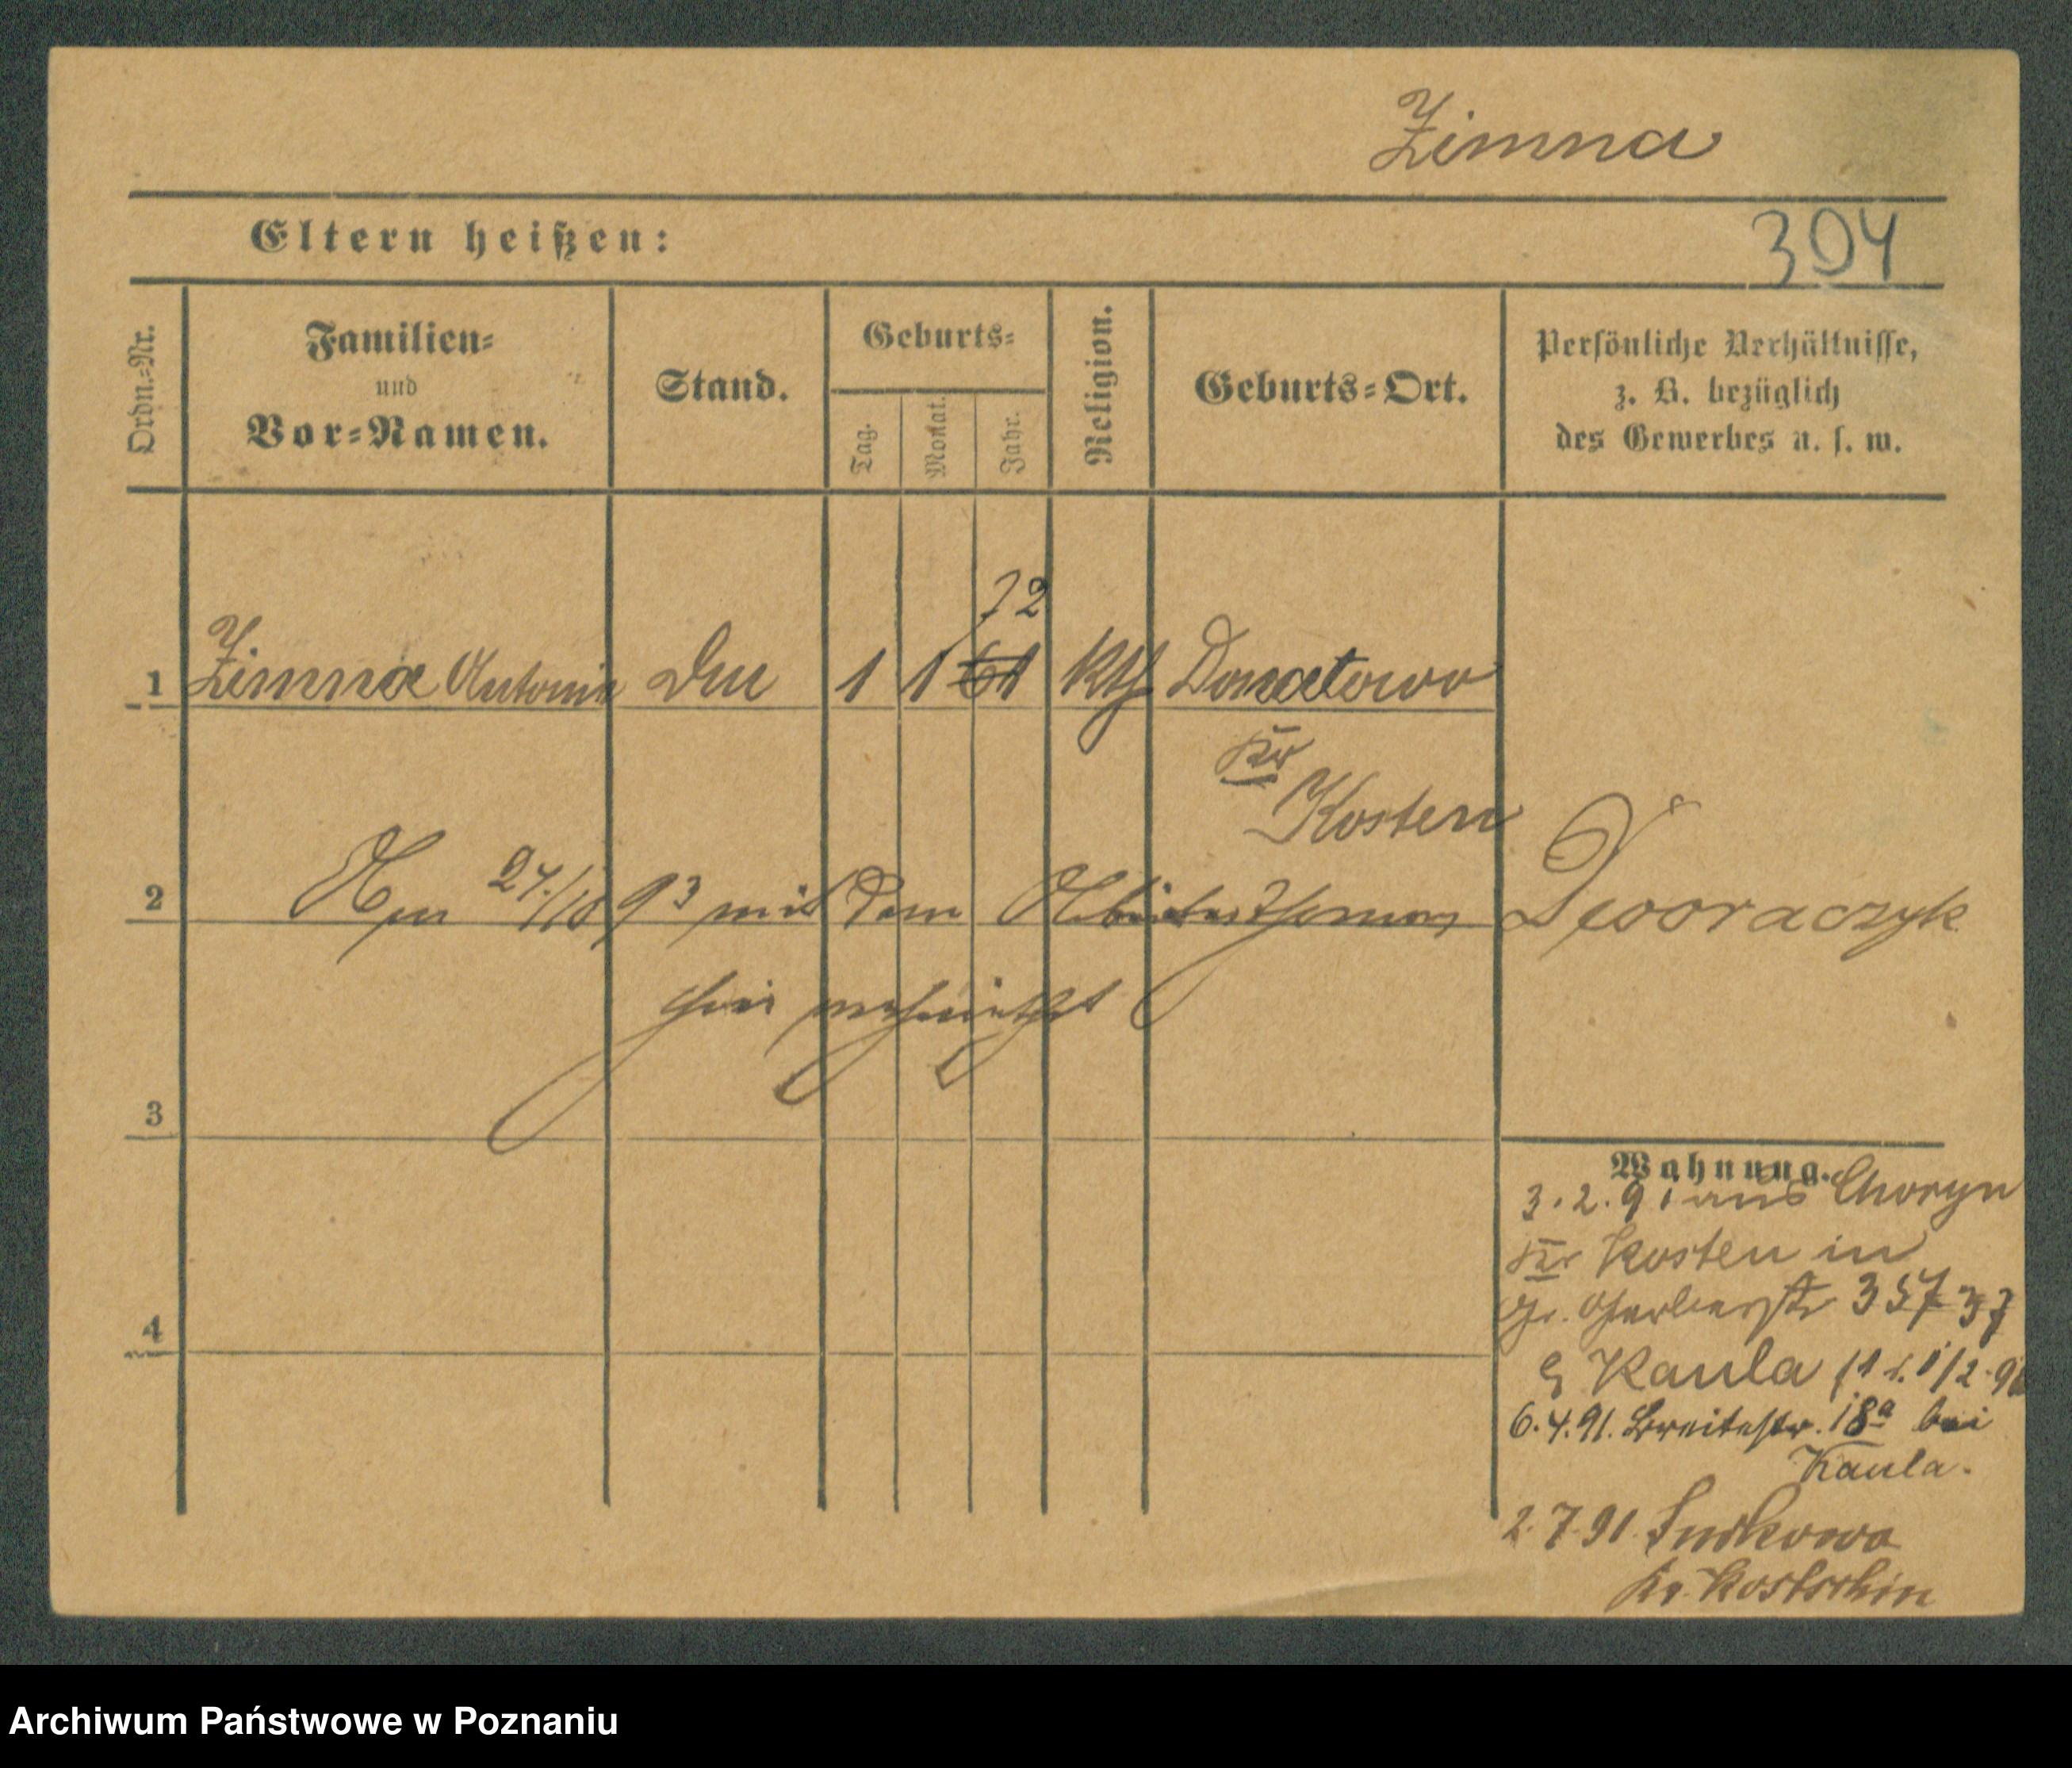 Zimna
304
Eltern heißen:
Ordn.=Nr.
Familien=
und
Vor=Namen.
Stand.
Geburts=
Tag.
Monat.
Jahr.
Religion.
Geburts=Ort.
Persönliche Verhältnisse,
z. B. bezüglich
des Gewerbes u. s. w.
72
1 Zimna Antonia 1 1 61 kth Donatowo
Kr
Kosten
2 Am 24/10 93 mit dem Arbeiter Thomas Dworaczyk
hier verheirathet
3
4
Wohnung.
3.2.91 aus Choryn
Kr Kosten in
Gr. Gerberstr 35 37
Kaula
6.4.91. Breitestr. 18a bei
Kaula.
2.7.91.
Kr. Kostschin
Archiwum Państwowe w Poznaniu